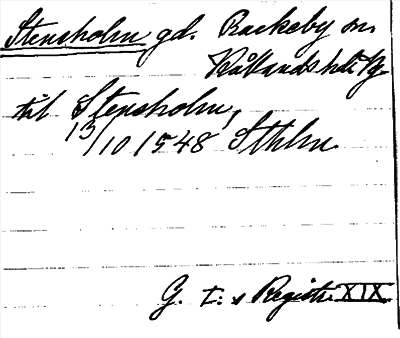 Stensholm gd. Rackeby sn
Kållands hd Vg.
till Stensholm,
13/10 1548 Sthlm
G. I:s Registr. XIX